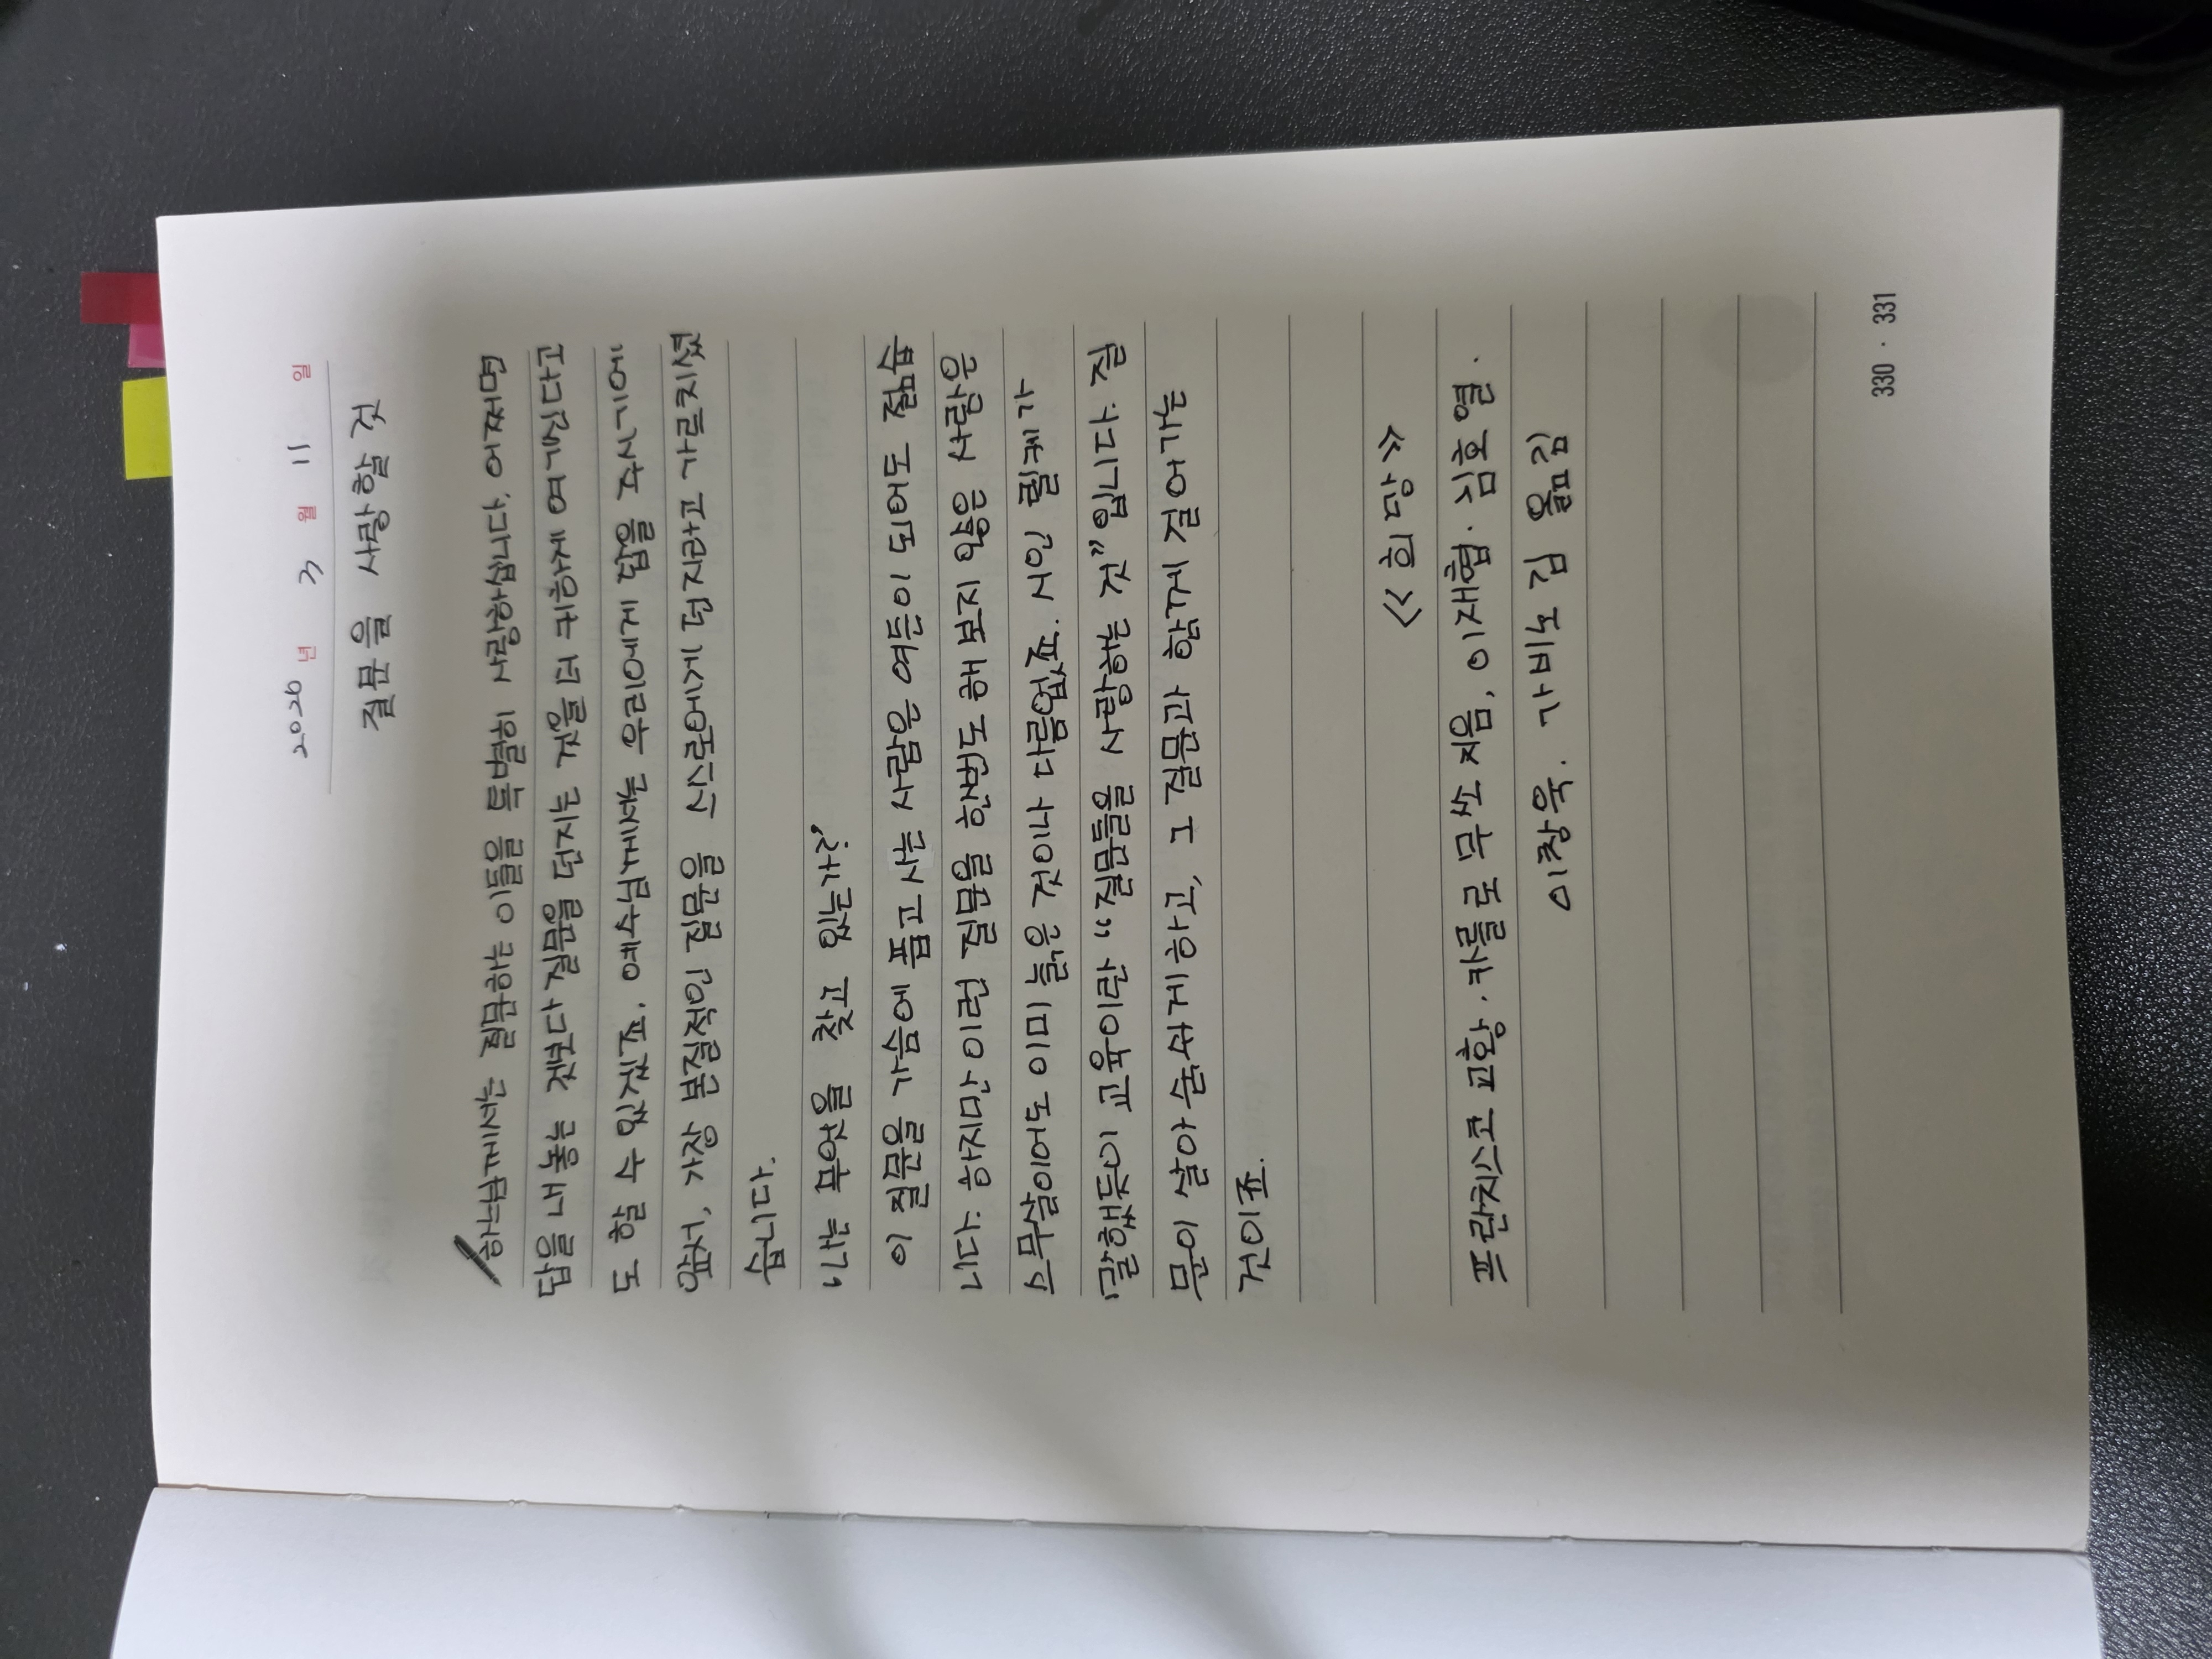 2026 년 3 월 11 일
질문을 사랑할 것
하느님께서는 질문하는 이들을 특별히 사랑하십니다. 어쩌면
답을 내놓는 것보다 질문을 던지는 것을 더 귀하게 여기신다고
도 할 수 있겠죠. 예수님께서는 우리에게 답을 주시기에
앞서, 가장 본질적인 질문을 스스로에게 던지라고 가르치셨
습니다.
'나는 무엇을 찾고 있는가?'
이 질문을 가슴에 품고 사는 사람은 여든이 되어도 젊습
니다. 하지만 이런 질문을 한번도 해 보지 않은 사람은
스무살이어도 이미 늙은 것이나 다름없죠. 시인 릴케가
말했듯이 교육이란 “질문들을 사랑하는 것”입니다. 질
문이 살아 숨쉬게 하고, 그 질문과 함께 걸어가는
것이죠.
《희망》
프란치스코 교황. 카를로 무쏘 지음, 이재협. 심호열.
이창욱. 가비노 김 옮김
330 · 331